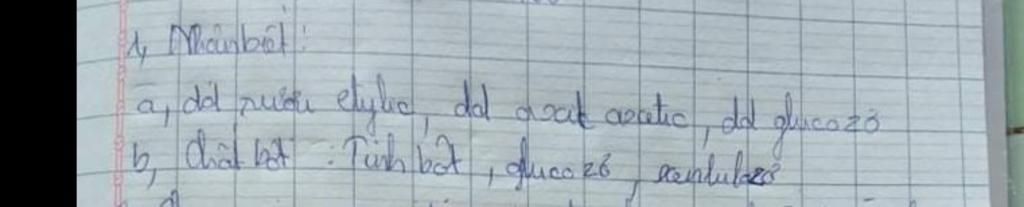 1, Nhận biết:
a, dd rượu etylic, dd axit axetic, dd glucozơ
b, Chất bột: Tinh bột, glucozơ, xenlulozơ